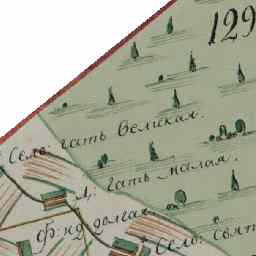 129
Село: гать великая.
Д: гать малая.
долгая
Село: свят